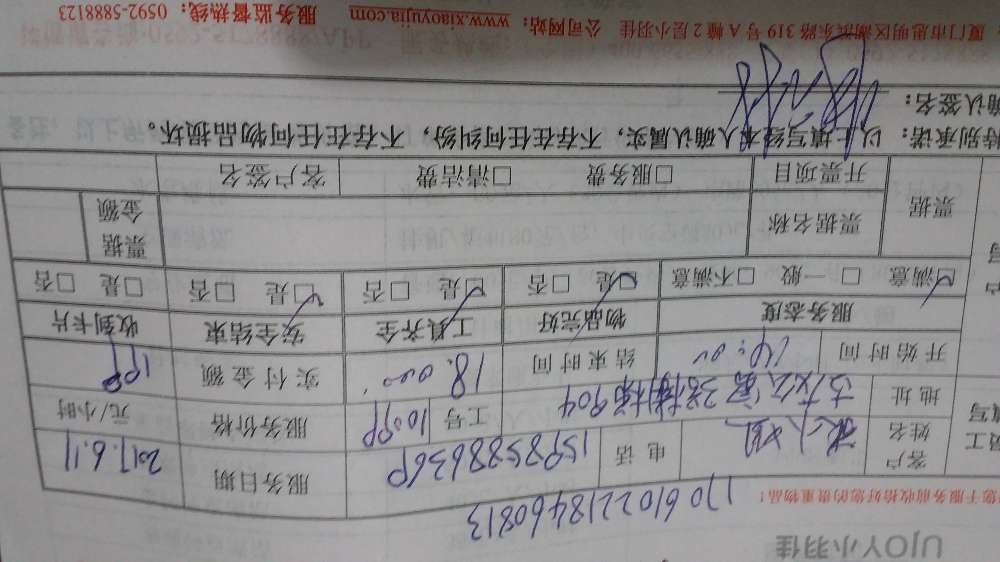 UJOY小羽佳
您于服务前收拾好您的贵重物品！
1706102218460813
客户姓名 电话 服务日期 2017.6.11
地址 904 工号 服务价格 元/小时
开始时间 14:00 结束时间 18.00 实付金额
服务态度 物品完好 工具齐全 安全结束 收到卡片
☑满意 □一般 □不满意 ☑是 □否 ☑是 □否 ☑是 □否 □是 □否
票据 票据名称 票据金额
开票项目 □服务费 □清洁费 客户签名
特别承诺：以上填写经本人确认属实，不存在任何纠纷，不存在任何物品损坏。
确认签名：
厦门市思明区湖滨东路 319 号 A 幢 2 层小羽佳 公司网站：www.xiaoyujia.com 服务监督热线：0592-5888123